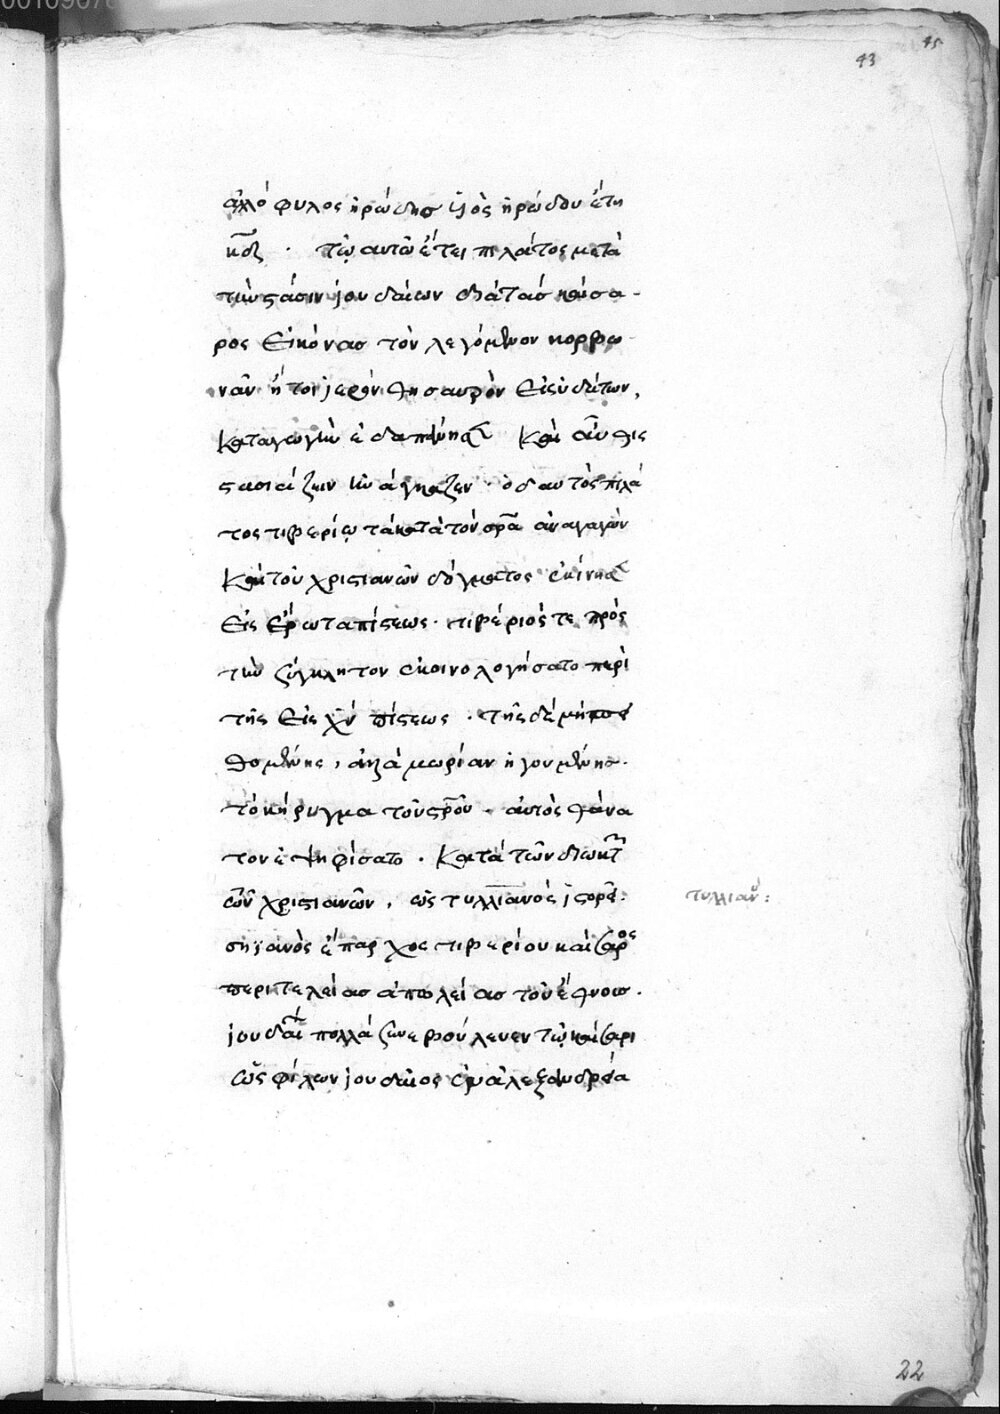 43 45
ἀλλόφυλος ἡρώδησ ὑιὸς ἡρώδου ἔτη
κδ · τῷ αυτῶ ἔτει πιλάτος μετὰ
τὴν στάσιν ἰουδαίων διὰ τὰσ καίσα-
ρος εἰκόνασ τὸν λεγόμενον κορβω
νᾶν ἤτοι ἱερὸν θησαυρὸν εἰς ὑδάτων,
καταγωγὴν ἐδαπάνησ καὶ αὖθις
στασιάζειν ἠνάγκαζεν · ὁ δ αυτὸς πιλά
τος τιβερίῳ τὰ κατὰ τὸν σρᾶ ἀναγαγὼν
καὶ τοῦ χριστιανῶν δόγματος ἐκίνησ
εἰς ἔρωτα πίστεως · τιβέριός τε πρὸς
τὴν σύγκλητον ἐκοινολογήσατο περὶ
τῆς εἰς χν πίστεως · τῆς δὲ μὴ πει
θομένης, ἀλλὰ μωρίαν ἡγουμένησ
τὸ κήρυγμα τοῦ σρου · ἀυτὸς θάνα
τον ἐψηφίσατο · κατὰ τῶν διωκτ
ῶν χριστιανῶν, ὡς τυλλιανὸς ἱστορε͂:
τυλλιαν:
σηιανὸς ἔπαρχος τιβερίου καίσαρος
περὶ τελείασ ἀπωλείασ τοῦ ἔθνουσ ·
ἰουδαί πολλὰ συνεβούλευεν τῷ καίσαρι
ὡς φίλων ἰουδαῖος ἐν ἀλεξανδρεία
22